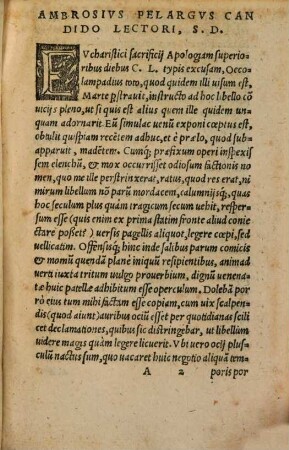 AMBROSIVS PELARGVS CAN
DIDO LECTORI, S. D.
EVcharistici sacrificij Apologiam superio
ribus diebus C. L. typis excusam, Oeco
lampadius
Marte pstrauit, instructo ad hoc libello cõ
uicijs pleno, ut si quis est alius quem ille quidem un
quam adornarit. Eũ simulac uenũ exponi cœptus est,
obtulit quispiam recẽtem adhuc, et è prælo, quod sub
apparuit, madẽtem. Cumq; præfixum operi inspexis
sem elenchũ, & mox occurrisset odiosum factionis no
men, quo me ille perstrinxerat, ratus, quod res erat, ni
mirum libellum nõ parũ mordacem, calumnijsq;, quas
hoc seculum plus quàm tragicum secum uehit, resper=
sum esse (quis enim ex prima statim fronte aliud conie
ctare posset?) uersis pagellis aliquot, legere cœpi, sed
uellicatim. Offensisq; hinc inde salibus parum comicis
& momũ quendã planè iniquũ resipientibus, animad
uerti iuxta tritum uulgo prouerbium, dignũ uenena=
tæ huic patellæ adhibitum esse operculum. Dolebã por
rò eius tum mihi factam esse copiam, cum uix scalpen=
dis (quod aiunt) auribus ociũ esset per quotidianas scili
cet declamationes, quibus sic distringebar, ut libellum
uidere magis quàm legere licuerit. Vbi uero ocij plus=
culũ nactus sum, quo uacaret huic negotio aliquã tem=
A 2 poris por